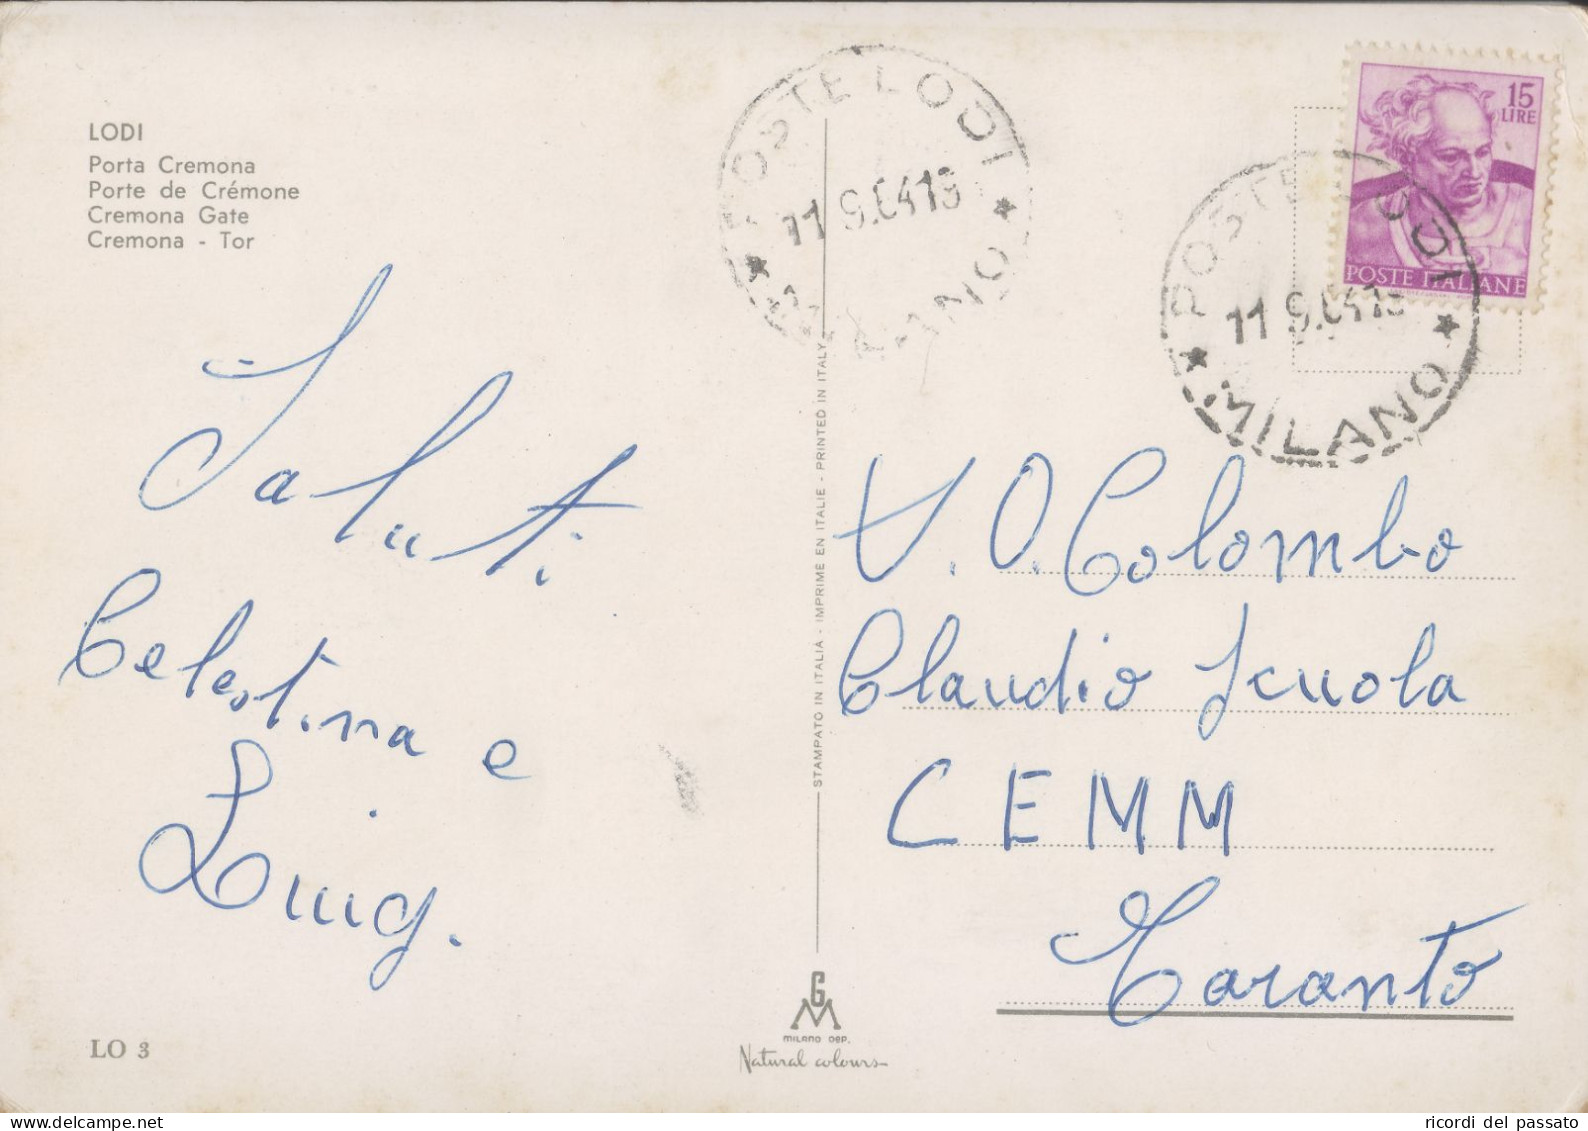 LODI
Porta Cremona
Porte de Crémone
Cremona Gate
Cremona - Tor
Saluti
Celestina e
Luigi.
LO 3
POSTE LODI
11 9.64 19
* MILANO *
STAMPATO IN ITALIA - IMPRIME EN ITALIE - PRINTED IN ITALY
GM
MILANO DEP.
Natural colours
15
LIRE
POSTE ITALIANE
POSTE LODI
11 9.64 19
* MILANO *
V. O. Colombo
Claudio Scuola
CEMM
Taranto
ricordi del passato